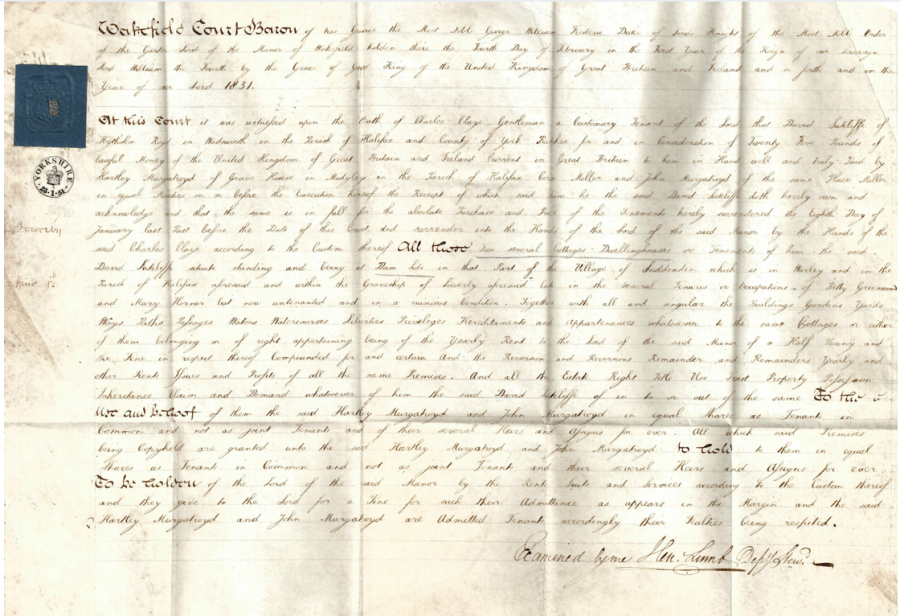 Wakefield Court Baron of his Grace the Most Noble George William Frederic Duke of Leeds Knight of the Most Noble Order
of the Garter Lord of the Manor of Wakefield holden there the Fourth Day of February in the First Year of the Reign of our Sovereign
Lord William the Fourth by the Grace of God King of the United Kingdom of Great Britain and Ireland and so forth and in the
Year of our Lord 1831.
At this Court it was witnessed upon the Oath of Charles Gentleman a Customary Tenant of the Lord that David Sutcliffe of
Mytholm Royd in Wadsworth in the Parish of Halifax and County of York for and in Consideration of Twenty Five Pounds of
Lawful Money of the United Kingdom of Great Britain and Ireland Current in Great Britain to him in Hand well and truly Paid by
Hartley Murgatroyd of House in Midgley in the Parish of Halifax Corn Miller and John Murgatroyd of the same Place Miller
YORKSHIRE
in equal Portions on or before the Execution hereof the Receipt of which said Sum he the said David Sutcliffe doth hereby own and
acknowledge and that the same is in full for the absolute Purchase and of the Tenements hereby surrendered the Eighth Day of
Sowerby
January last Past before the Date of this Court did surrender into the Hands of the Lord of the said Manor by the Hands of the
said Charles according to the Custom thereof All those two several Cottages Dwellinghouses or Tenements of him the said
David Sutcliffe situate standing and being at in that Part of the Village of Luddenden which is in Warley and in the
Parish of Halifax aforesaid and within the Graveship of Sowerby aforesaid late in the several Tenures or Occupations of Betty Greenwood
and Mary Horner but now untenanted and in a ruinous Condition. Together with all and singular the Buildings Gardens Yards
Ways Paths Passages Waters Watercourses Liberties Privileges Hereditaments and Appurtenances whatsoever to the same Cottages or either
of them belonging or of right appertaining being of the Yearly Rent to the Lord of the said Manor of a Half Penny and
the Fine in respect thereof Compounded for and certain And the Reversion and Reversions Remainder and Remainders Yearly and
other Rents Issues and Profits of all the same Premises. And all the Estate Right Title Use Trust Property Possession
Inheritance Claim and Demand whatsoever of him the said David Sutcliffe of in to or out of the same To the
Use and behoof of them the said Hartley Murgatroyd and John Murgatroyd in equal shares as Tenants in
Common and not as joint Tenants and of their several Heirs and Assigns for ever. All which said Premises
being Copyhold are granted unto the said Hartley Murgatroyd and John Murgatroyd to hold to them in equal
Shares as Tenants in Common and not as joint Tenants and their several Heirs and Assigns for ever
To be holden of the Lord of the said Manor by the Rent Suits and Services according to the Custom thereof
and they give to the Lord for a Fine for such their Admittance as appears in the Margin and the said
Hartley Murgatroyd and John Murgatroyd are Admitted Tenants accordingly their Fealties being respited.
Examined by me Hen. Lumb Depy. Stewd.